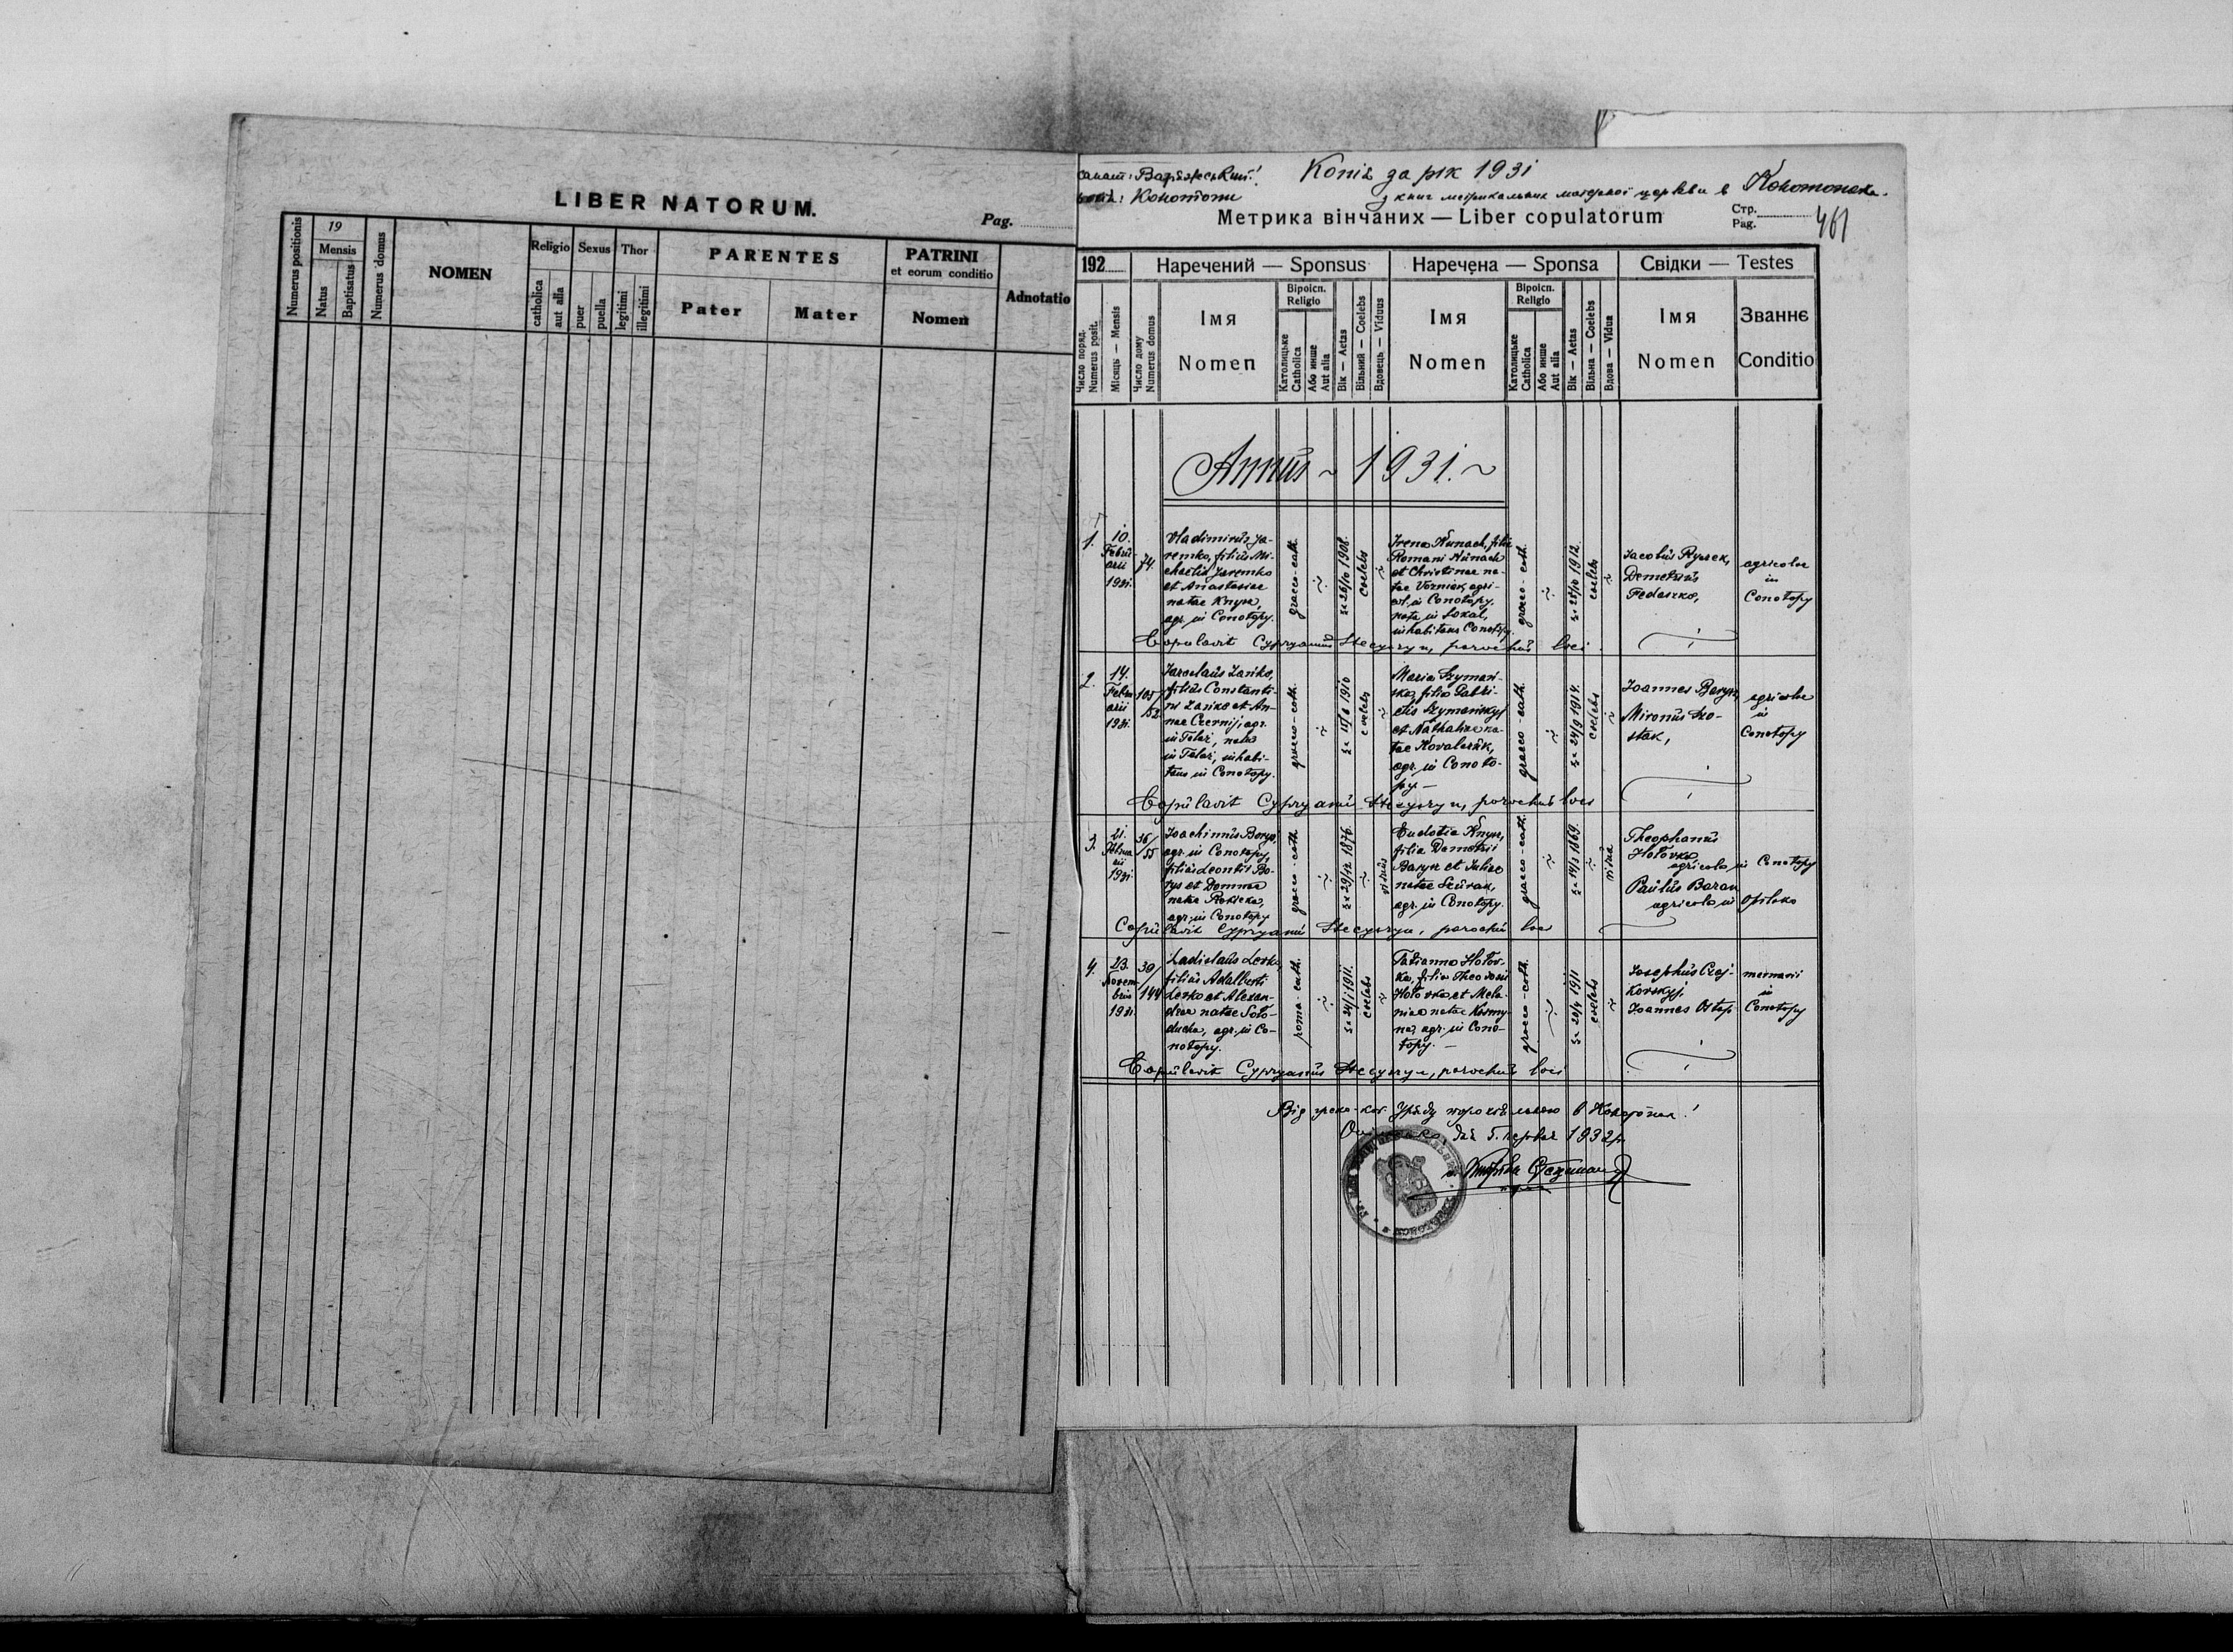 LIBER NATORUM.
Pag.
Numerus positionis
19
Mensis
Natus
Baptisatus
Numerus domus
NOMEN
Religio
catholica
aut alia
Sexus
puer
puella
Thor
legitimi
illegitimi
PARENTES
Pater
Mater
PATRINI
et eorum conditio
Nomen
Adnotatio
Копія за рік 1931
Конотопи
з книг метрикальних матерної церкви в Конотопах.
Метрика вінчаних — Liber copulatorum
Стр.
Pag.
461
192
Наречений — Sponsus
Наречена — Sponsa
Свідки — Testes
Число поряд.
Numerus posit.
Місяць — Mensis
Число дому
Numerus domus
Імя
Nomen
Віроісп.
Religio
Католицьке
Catholica
Або инше
Aut alia
Вік — Aetas
Вільний — Coelebs
Вдовець — Viduus
Імя
Nomen
Віроісп.
Religio
Католицьке
Catholica
Або инше
Aut alia
Вік — Aetas
Вільна — Coelebs
Вдова — Vidua
Імя
Nomen
Званнє
Conditio
Annus ~ 1931. ~
1.
10.
Februarii
1931.
74.
Vladimirus Ja-
remko, filius Mi-
chaelis Jaremko
et Anastasiae
natae Knysz,
agr. in Conotopy.
graeco-cath.
26/10 1908.
coelebs
Irena Hunach, filia
Romani Hunach
et Christinae na-
tae Vozniak, agri-
col. in Conotopy,
nata in Sokal,
inhabitans Conotopy.
graeco-cath.
25/10 1912.
coelebs
Jacobus
Demetrius
Fedaszko,
agricolae
in
Conotopy
Copulavit Cypryanus Stecyszyn, parochus loci.
2.
14.
Februarii
1931.
105/
52
Jaroslaus Zanko,
filius Constanti-
ni Zanko et An-
nae Czernij, agr.
in Telaż, natus
in Telaż, inhabi-
tans in Conotopy.
graeco-cath.
15/6 1910
coelebs
Maria Szymań-
ska, filia Gabri-
elis Szymańskyj
et Nathaliae na-
tae Kovalczuk,
agr. in Conoto-
py —
graeco-cath.
24/9 1914.
coelebs
Joannes Barysz,
Mironus Szo-
stak,
agricolae
in
Conotopy
Copulavit Cypryanus Stecyszyn, parochus loci
3.
21.
1931
36/
55
Joachimus
agr. in Conotopy,
filius Leontii
et Domnae
natae
agr. in Conotopy
graeco-cath.
29/12 1876.
viduus
Eudotia Knysz,
filia Demetrii
Barysz et Juliae
natae
agr. in Conotopy.
graeco-cath.
14/3 1869.
vidua
Theophanus
Hotovko
agricola in Conotopy
Paulus Baran
agricola in Opilsko
Copulavit Cypryanus Stecyszyn, parochus loci
4.
23.
Novem-
bris
1931.
39/
144
Ladislaus Lesko,
filius Adalberti
Lesko et Alexan-
drae natae Soło-
ducha, agr. in Co-
notopy.
romo-cath.
24/1 1911.
coelebs
Tatianna Hotov-
ko, filia Theodosii
Hotovko et Mela-
niae natae Kosmy-
na, agr. in Cono-
topy. —
graeco-cath.
20/5 1911
coelebs
Josephus Czaj-
kovskyj,
Joannes Ostap
in
Conotopy
Copulavit Cypryanus Stecyszyn, parochus loci
Від греко-кат. Уряду парохіяльного в Конотопах!
дня 5. червня 1932р.